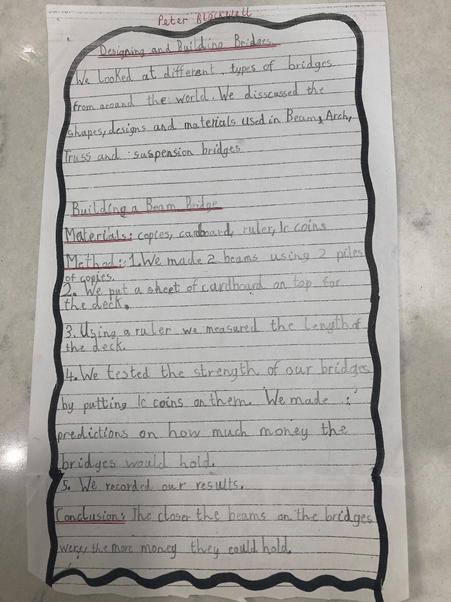 Peter Blackwell
Designing and Building Bridges
We Looked at different types of bridges
from around the world. We disscused the
shapes, designs and materials used in Beam, Arch,
Truss and suspension bridges
Building a Beam Bridge
Materials: copies, cardboard, ruler, 1c coins
Method: 1. We made 2 beams using 2 piles
of copies.
2. We put a sheet of cardboard on top for
the deck.
3. Using a ruler we measured the length of
the deck.
4. We tested the strength of our bridges
by putting 1c coins on them. We made
predictions on how much money the
bridges would hold.
5. We recorded our results.
Conclusion: The closer the beams on the bridges
were, the more money they could hold.